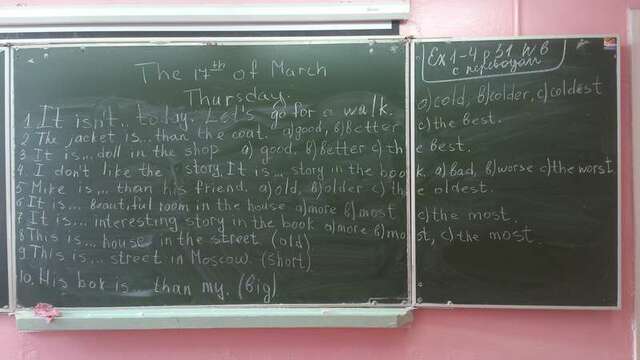 The 17th of March
Thursday.
Ex 1-4 p 51 WB
с переводом
1 It isn't... today. Let's go for a walk. a) cold, b) colder, c) coldest
2 The jacket is... than the coat. a) good, b) better c) the best.
3 It is... doll in the shop a) good, b) better c) the best.
4. I don't like the story. It is... story in the book. a) bad, b) worse c) the worst
5 Mike is... than his friend. a) old, b) older c) the oldest.
6 It is... beautiful room in the house a) more b) most c) the most.
7 It is... interesting story in the book a) more b) most, c) the most.
8 This is... house in the street (old)
9 This is... street in Moscow. (short)
10. His box is... than my. (big)